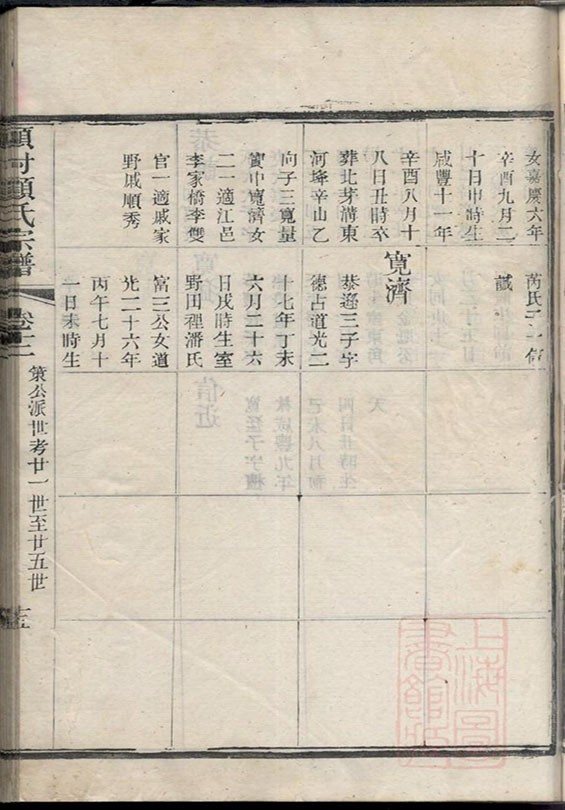 女嘉慶六年
辛酉九月二
十日申時生
咸豐十一年
辛酉八月十
八日丑時卒
葬北芽溝東
河埄辛山乙
向子三寬量
寬中寬濟女
二一適江邑
李家橋李雙
官一適戚家
野戚順秀
芮氏子一信
誠
寬濟
恭遜三子字
德占道光二
十七年丁未
六月二十六
日戌時生室
野田裡潘氏
富三公女道
光二十六年
丙午七月十
一日未時生
頭村顧氏宗譜
卷十二
策公派世考廿一世至廿五世
上海圖
書館藏